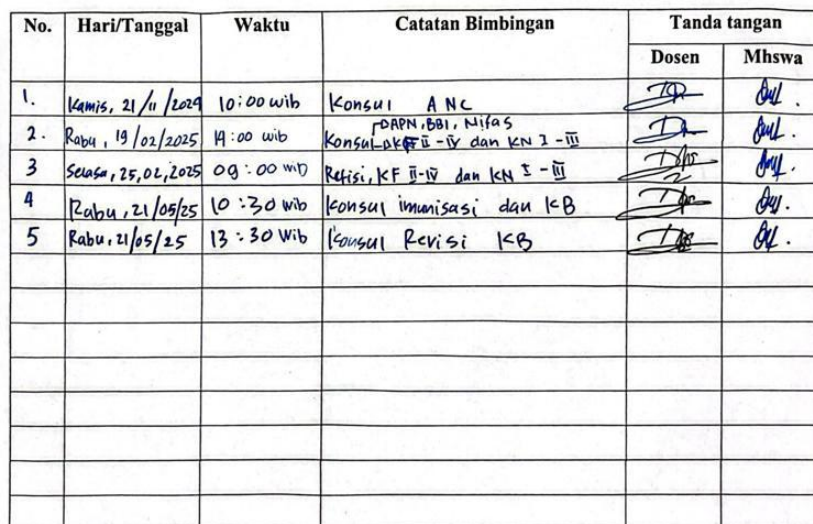 No. Hari/Tanggal Waktu Catatan Bimbingan Tanda tangan
Dosen Mhswa
1. Kamis, 21/11/2024 10:00 wib Konsul ANC
DAPN, BBl, Nifas
2. Rabu, 19/02/2025 14:00 wib Konsul KF II - IV dan KN I - III
3 Selasa, 25,02,2025 09:00 wib Refisi, KF II-IV dan KN I - III
4 Rabu, 21/05/25 10:30 wib Konsul imunisasi dan KB
5 Rabu, 21/05/25 13:30 wib Konsul Revisi KB